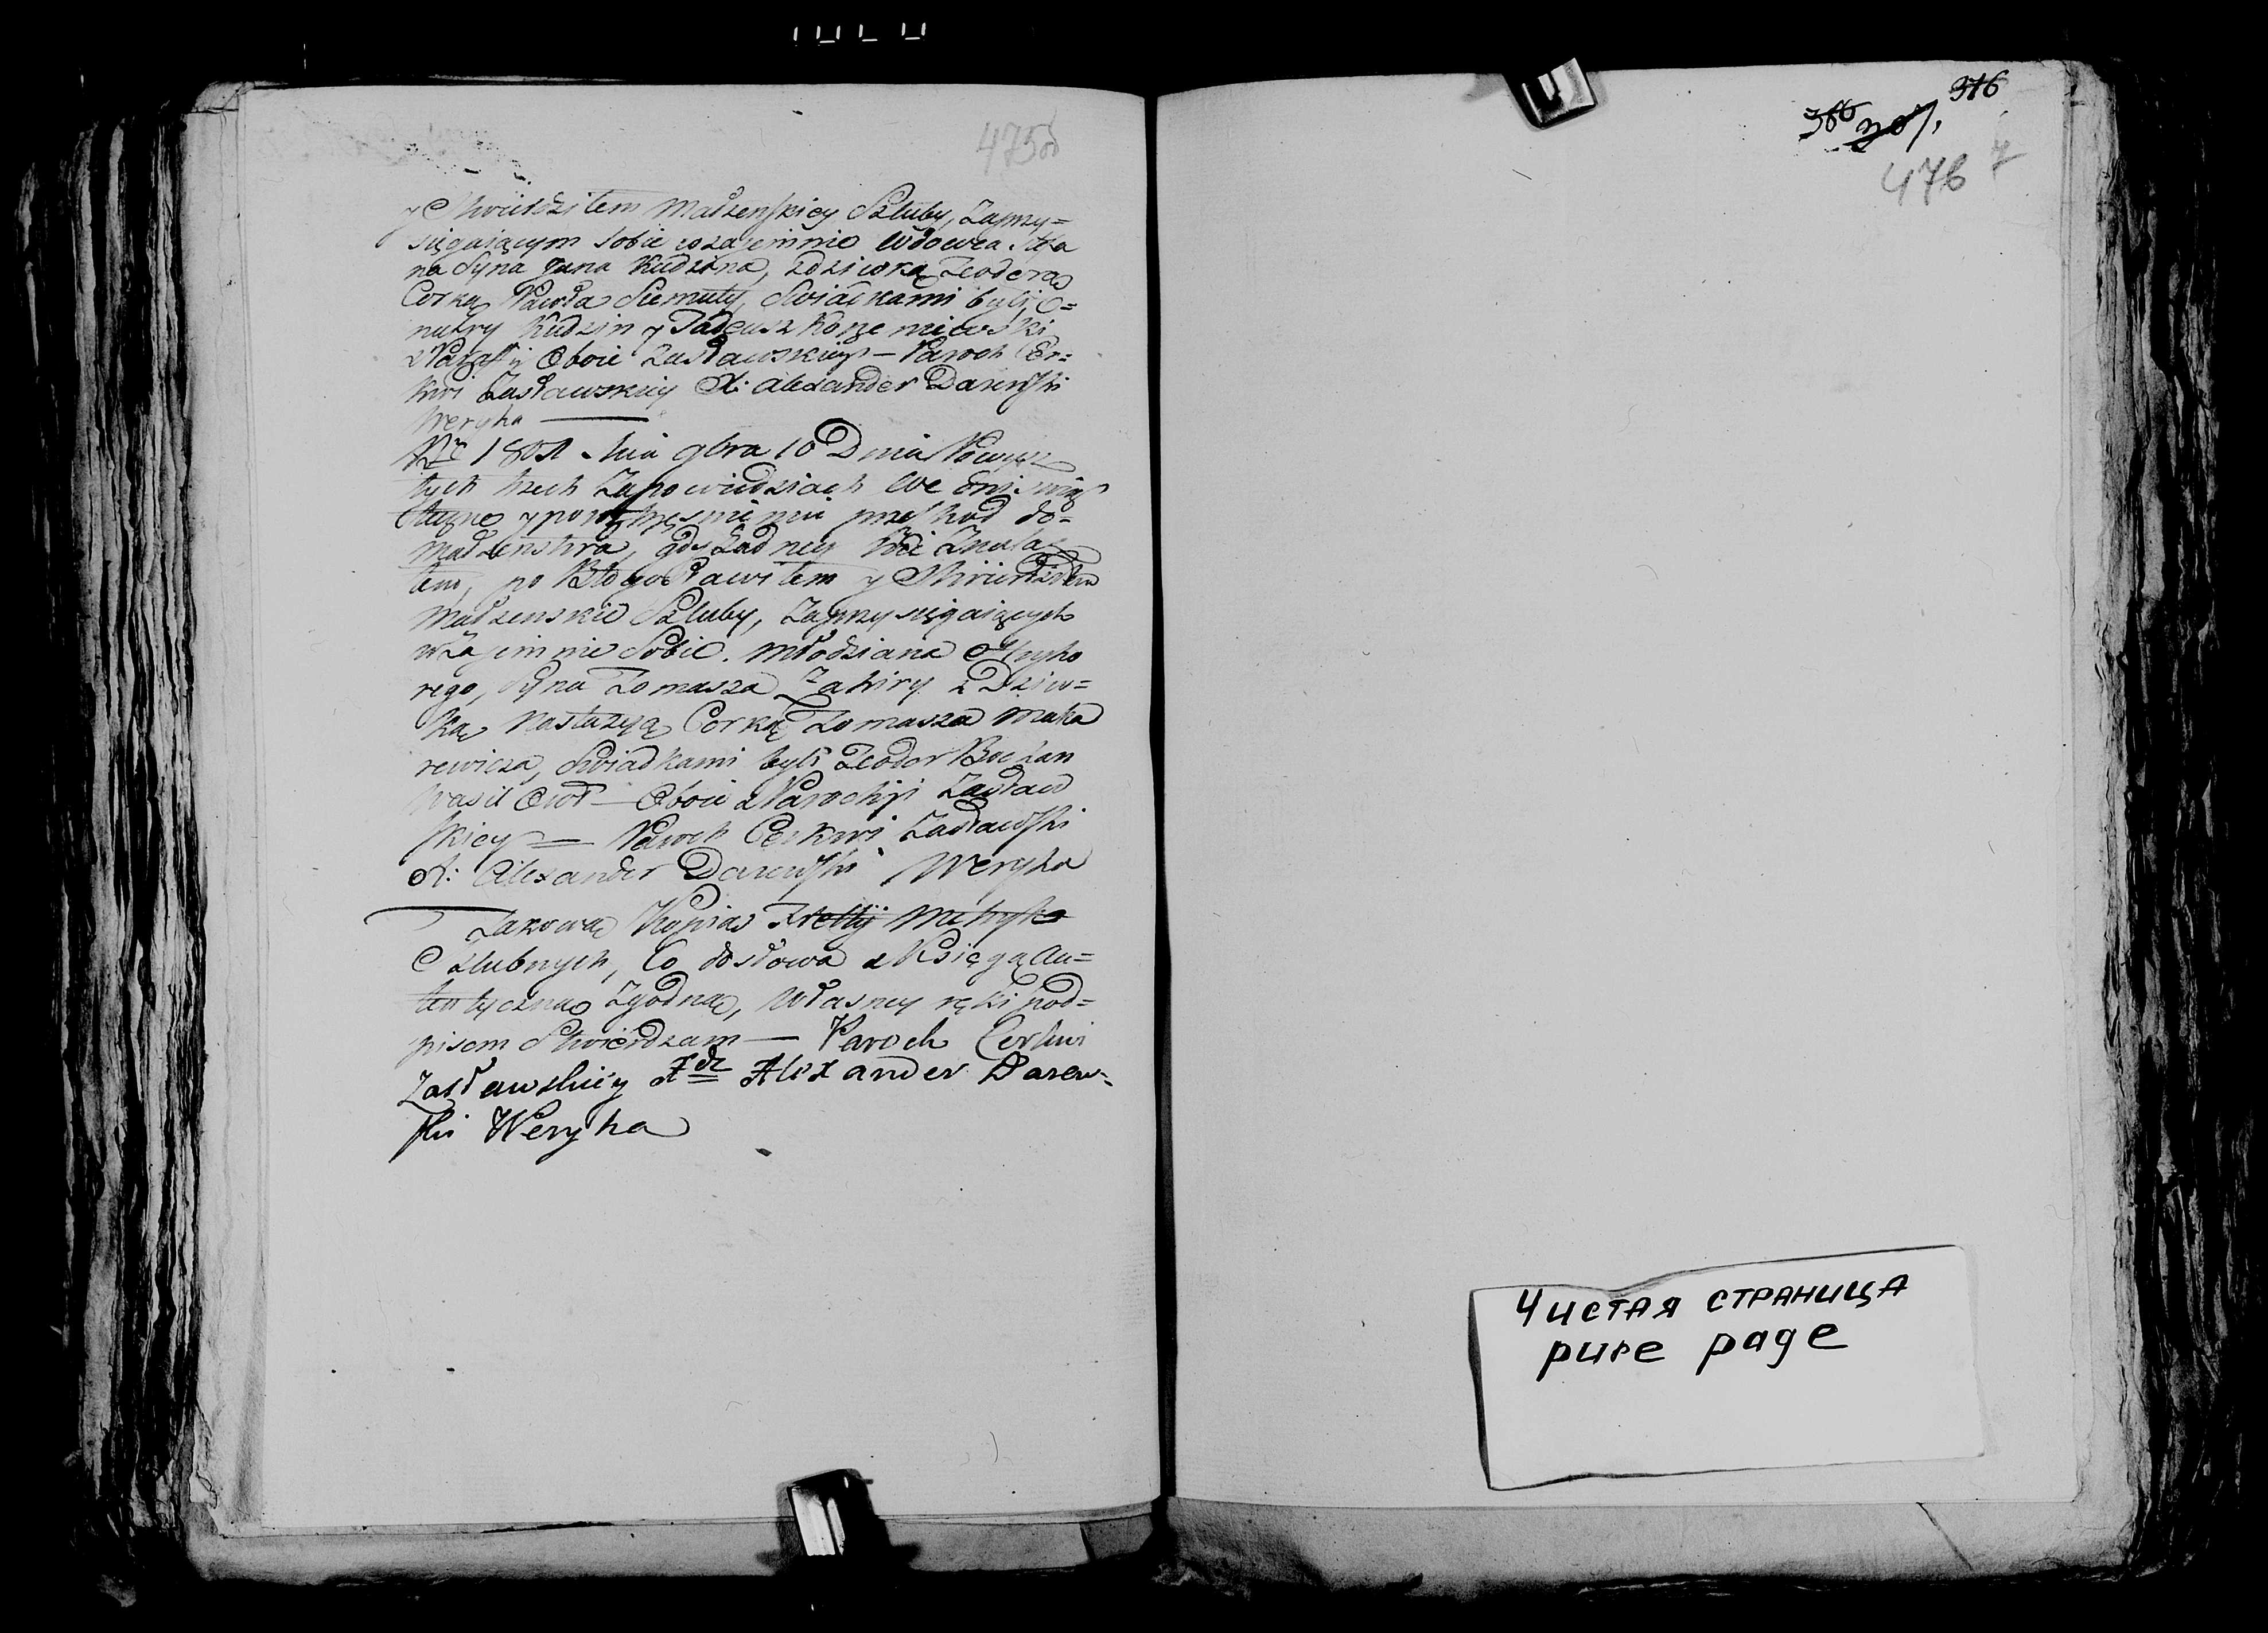 475об
y Stwierdziłem Małżenskiey Szluby, Zaprzy=
sięgaiącym Sobie wzaiemnie Wdowca Stefa
na Syna Jana Kudzina, z Dziewką Teodorą
Corką Pawła Siemuty, Swiadkami byli, O=
nufry Kudzin y Tadeusz Korzeniewski
z Parafii Oboie Zasławskiey – Paroch Cer=
kwi Zasławskiey X: Alexander Darewski
Weryha
Rku 1801 Mca 9bra 10 Dnia Po wysz
łych trzech Zapowiedziach we dni świą
teczne y po
przeszkod do=
Małżenstwa, gdy żadney nie Znalaz
łem, po Błogosławiłem y Stwierdziłem
Małzenskie Szluby, Zaprzysięgaiących
wzaiemnie Sobie. Młodziana Hryho
rego, Syna Tomasza Zahiry z Dziew=
ką Nastazyą Corką Tomasza Maka
rewicza, Swiadkami byli Teodor Bochan
Wasil – Oboie z Parochyi Zasław
skiey — Paroch Cerkwi Zasławski
X: Alexander Darewski Weryha
Takową Kopią Metryk
Szlubnych, Co do słowa z Księgą Au=
tentyczną Zgodną, Własney ręki pod=
pisem Stwierdzam — Paroch Cerkwi
Zasławskiey Xdz Alexander Darew=
ski Weryha
376
386
207.
476
Чистая страница
pure page